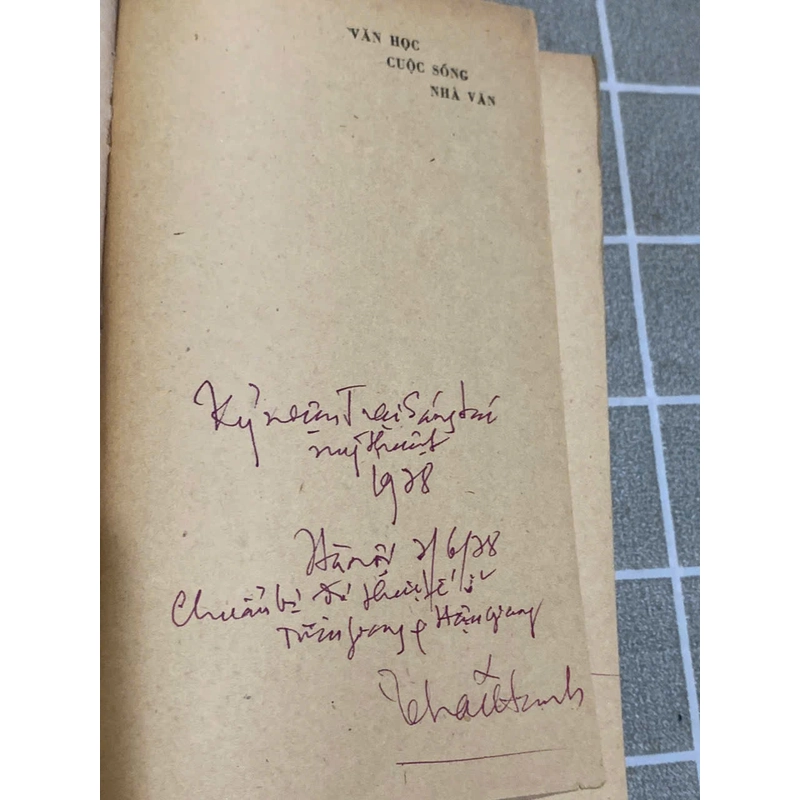 VĂN HỌC
CUỘC SỐNG
NHÀ VĂN
Kỷ niệm Trại Sáng tác
mỹ thuật
1978
Hà nội 7/6/78
Chuẩn bị đi thực tế ở
Tiền giang & Hậu giang